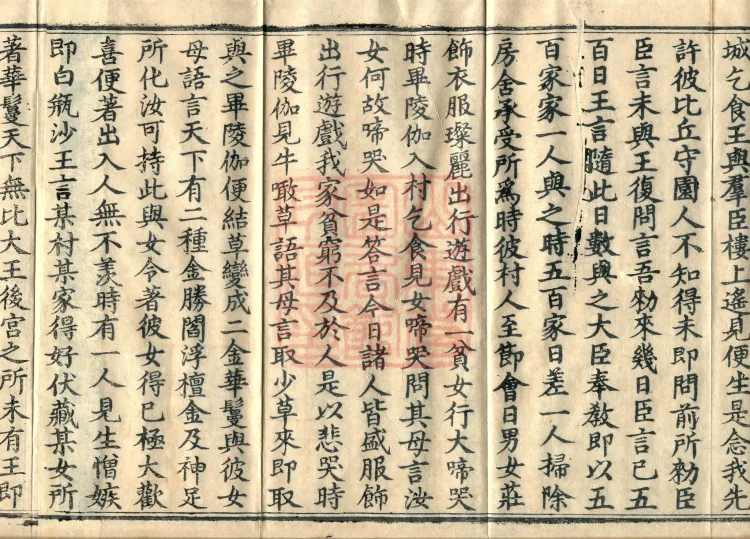 城乞食王與羣臣樓上遙見便生是念我先
許彼比丘守園人不知得未即問前所勑臣
臣言未與王復問言吾勑來幾日臣言已五
百日王言隨此日數與之大臣奉教即以五
百家家一人與之時五百家日差一人掃除
房舍承受所為時彼村人至節會日男女莊
飾衣服璨麗出行遊戲有一貧女行大啼哭
時畢陵伽入村乞食見女啼哭問其母言汝
女何故啼哭如是答言今日諸人皆盛服飾
出行遊戲我家貧窮不及於人是以悲哭時
畢陵伽見牛噉草語其母言取少草來即取
與之畢陵伽便結草變成二金華鬘與彼女
母語言天下有二種金勝閻浮檀金及神足
所化汝可持此與女令著彼女得已極大歡
喜便著出入人無不羨時有一人見生憎嫉
即白瓶沙王言某村某家得好伏藏某女所
著華鬘天下無比大王後宮之所未有王即